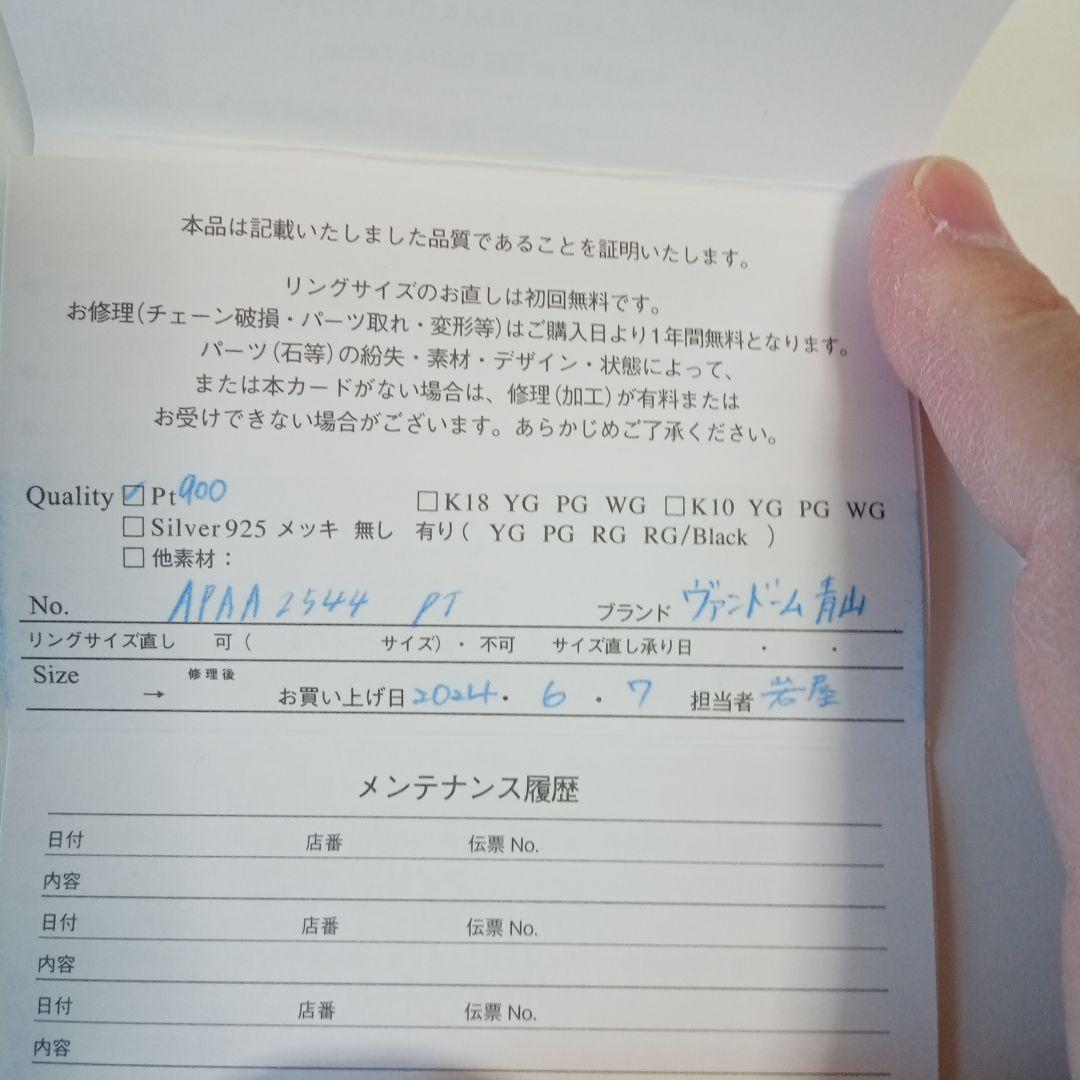 本品は記載いたしました品質であることを証明いたします。
リングサイズのお直しは初回無料です。
お修理(チェーン破損・パーツ取れ・変形等)はご購入日より1年間無料となります。
パーツ(石等)の紛失・素材・デザイン・状態によって、
または本カードがない場合は、修理(加工)が有料または
お受けできない場合がございます。あらかじめご了承ください。
Quality ☑Pt900 □K18 YG PG WG □K10 YG PG WG
□Silver925 メッキ 無し 有り( YG PG RG RG/Black )
□他素材:
No. APAA2544 PT ブランド ヴァンドーム青山
リングサイズ直し 可( サイズ)・不可 サイズ直し承り日 ・ ・
Size → 修理後 お買い上げ日 2024・6・7 担当者 岩屋
メンテナンス履歴
日付 店番 伝票No.
内容
日付 店番 伝票No.
内容
日付 店番 伝票No.
内容